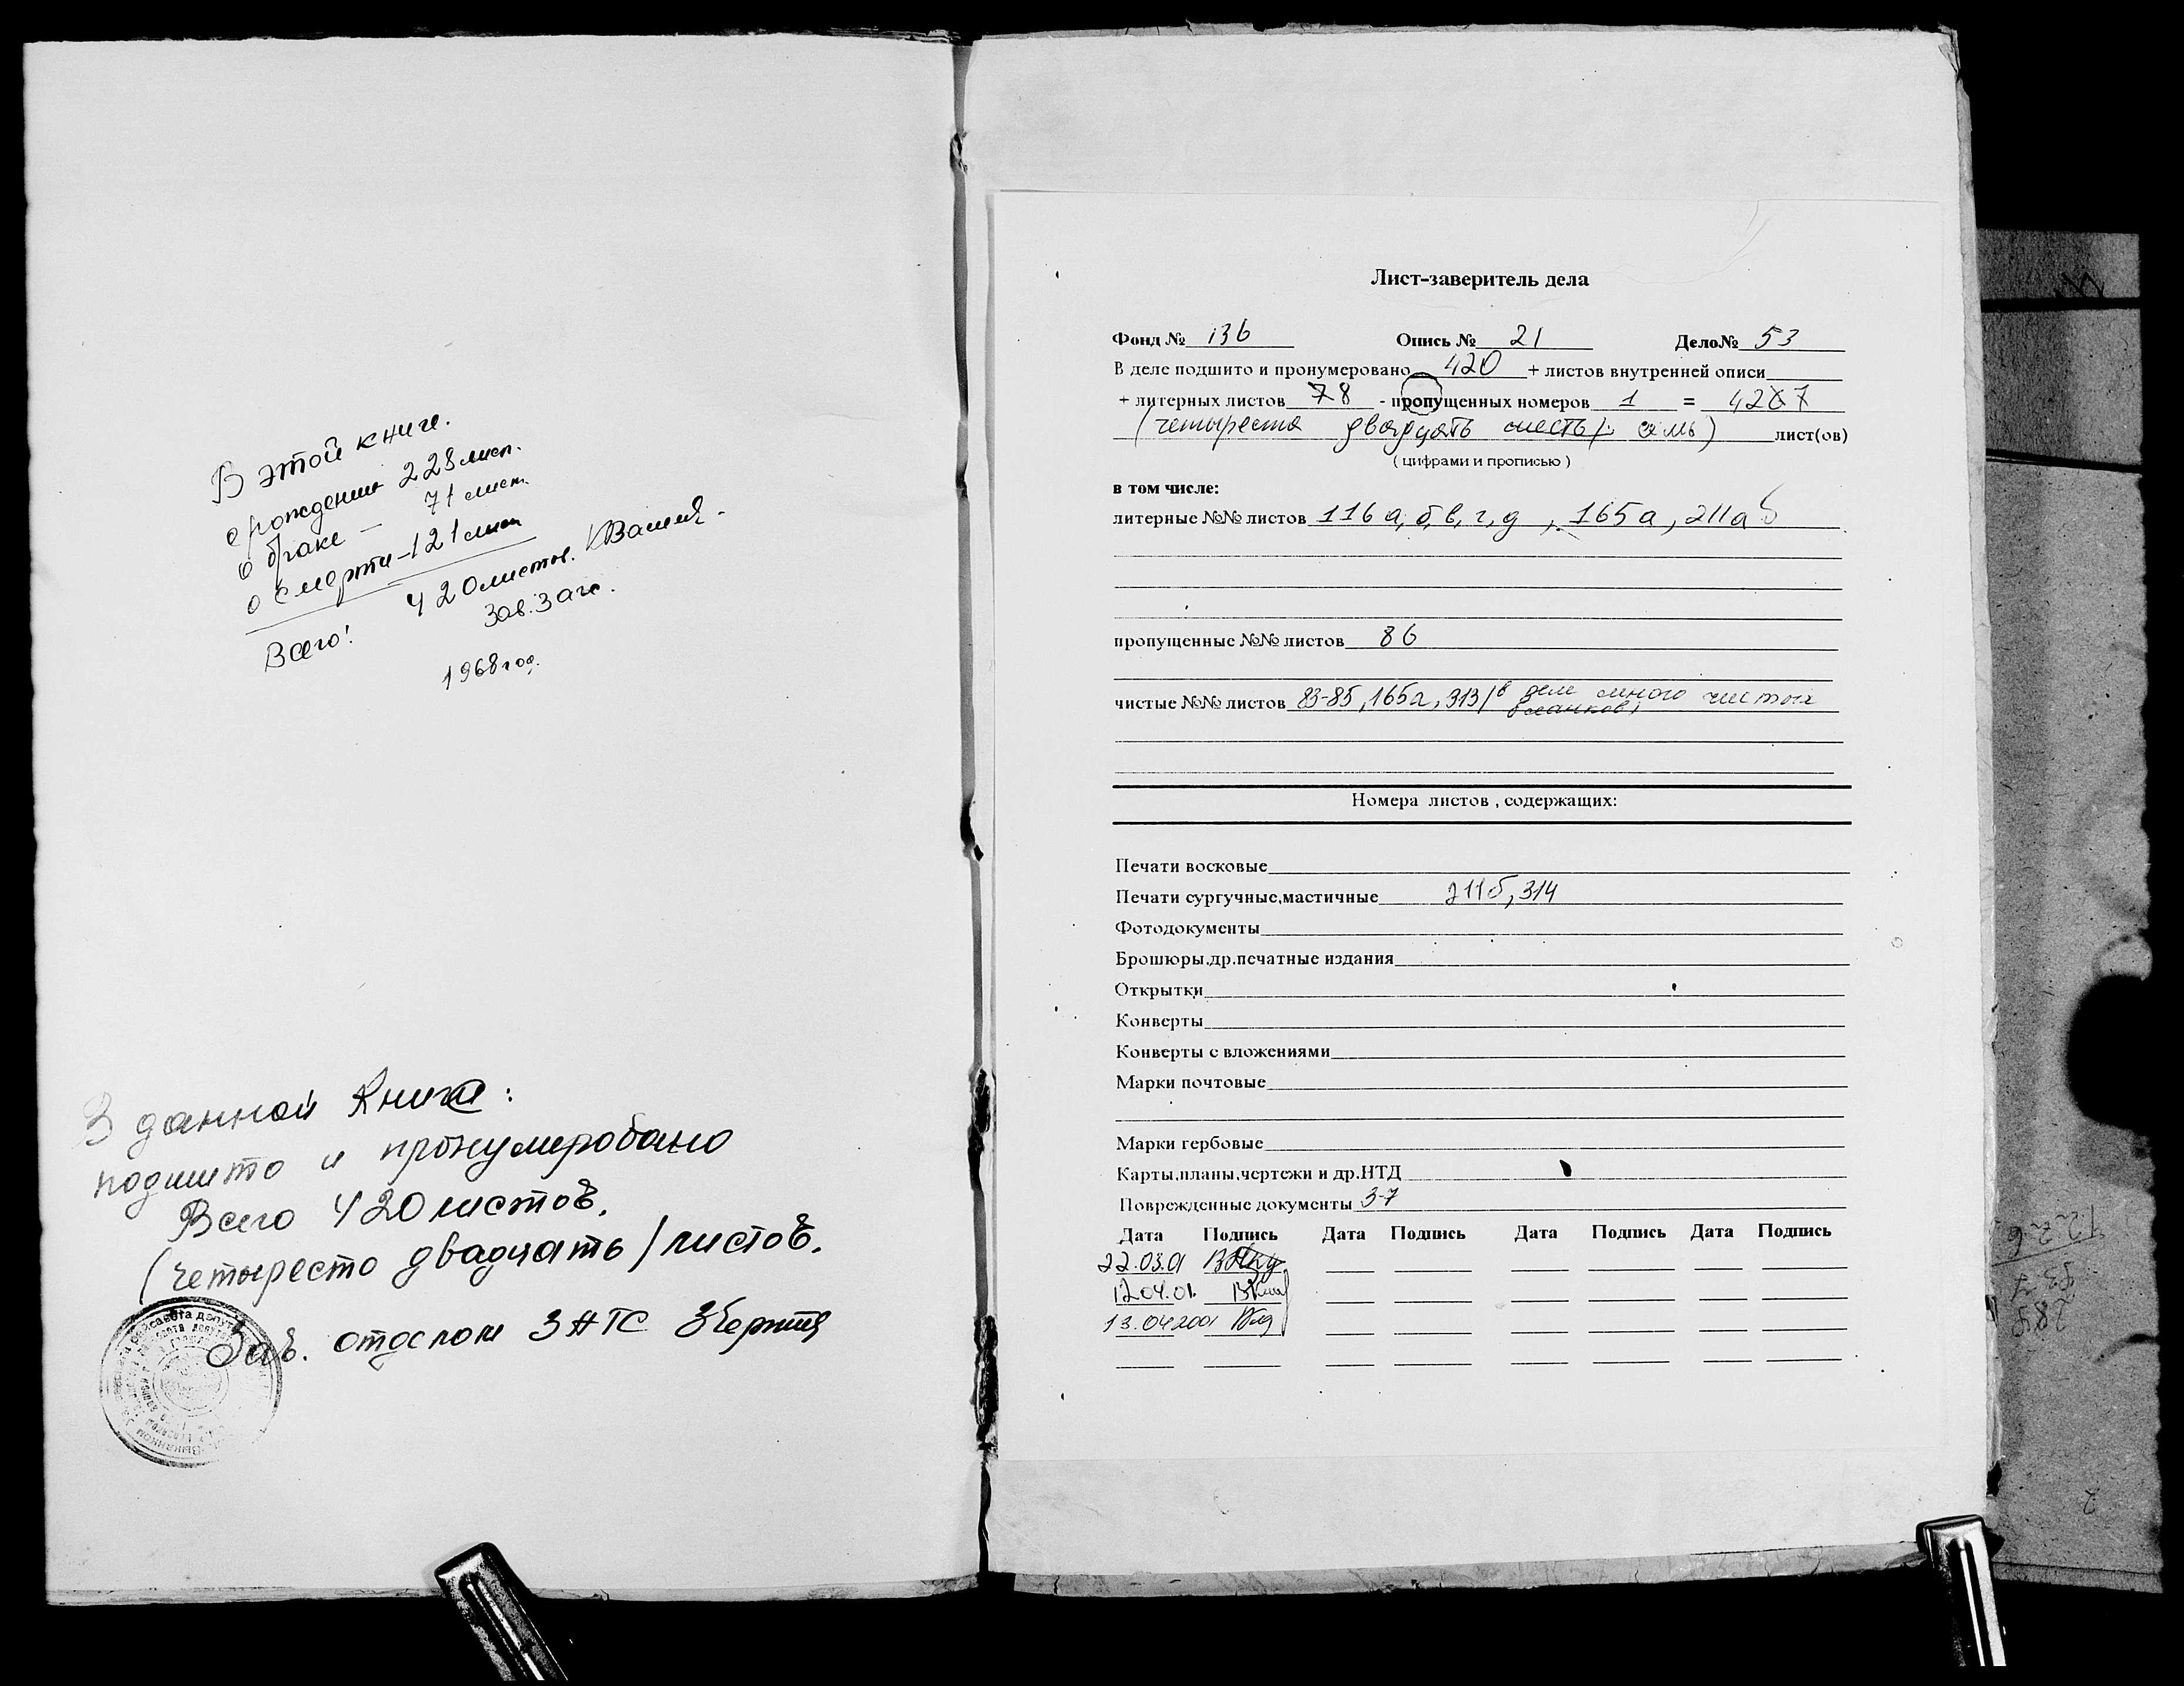 В этой книге.
о рождении 228 лист.
о браке – 71 лист.
о смерти – 121 лист
Всего! 420 листов.
Зав. Загс.
1968 год.
В данной Книге:
подшито и пронумеровано
Всего 420 листов.
(четыресто двадцать) листов.
Зав. отделом ЗАГС
Лист-заверитель дела
Фонд № 136 Опись № 21 Дело№ 53
В деле подшито и пронумеровано 420 + листов внутренней описи
+ литерных листов 7 8 - пропущенных номеров 1 = 426 7
(четыреста двадцать шесть) семь) лист(ов)
( цифрами и прописью )
в том числе:
литерные №№ листов 116 а, б, в, г, д , 165а , 211а б
пропущенные №№ листов 86
чистые №№ листов 83-85, 165а, 313 (в деле много чистых
бланков)
Номера листов , содержащих:
Печати восковые
Печати сургучные,мастичные 211б, 314
Фотодокументы
Брошюры,др.печатные издания
Открытки
Конверты
Конверты с вложениями
Марки почтовые
Марки гербовые
Карты,планы,чертежи и др.НТД
Поврежденные документы 3-7
Дата Подпись Дата Подпись Дата Подпись Дата Подпись
22.03.01
12.04.01.
13.04.2001